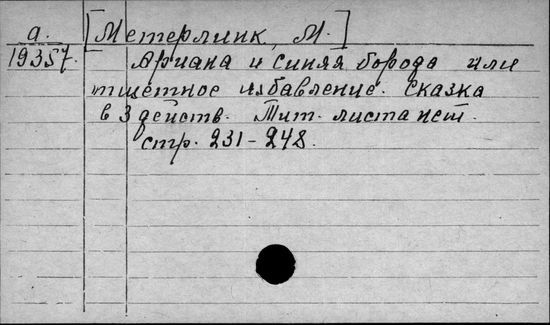 а. [Метерлинк, М.]
19357. Ариана и синяя борода или
тщетное избавление. Сказка
в 3 действ. Тит. листа нет.
стр. 231-248.